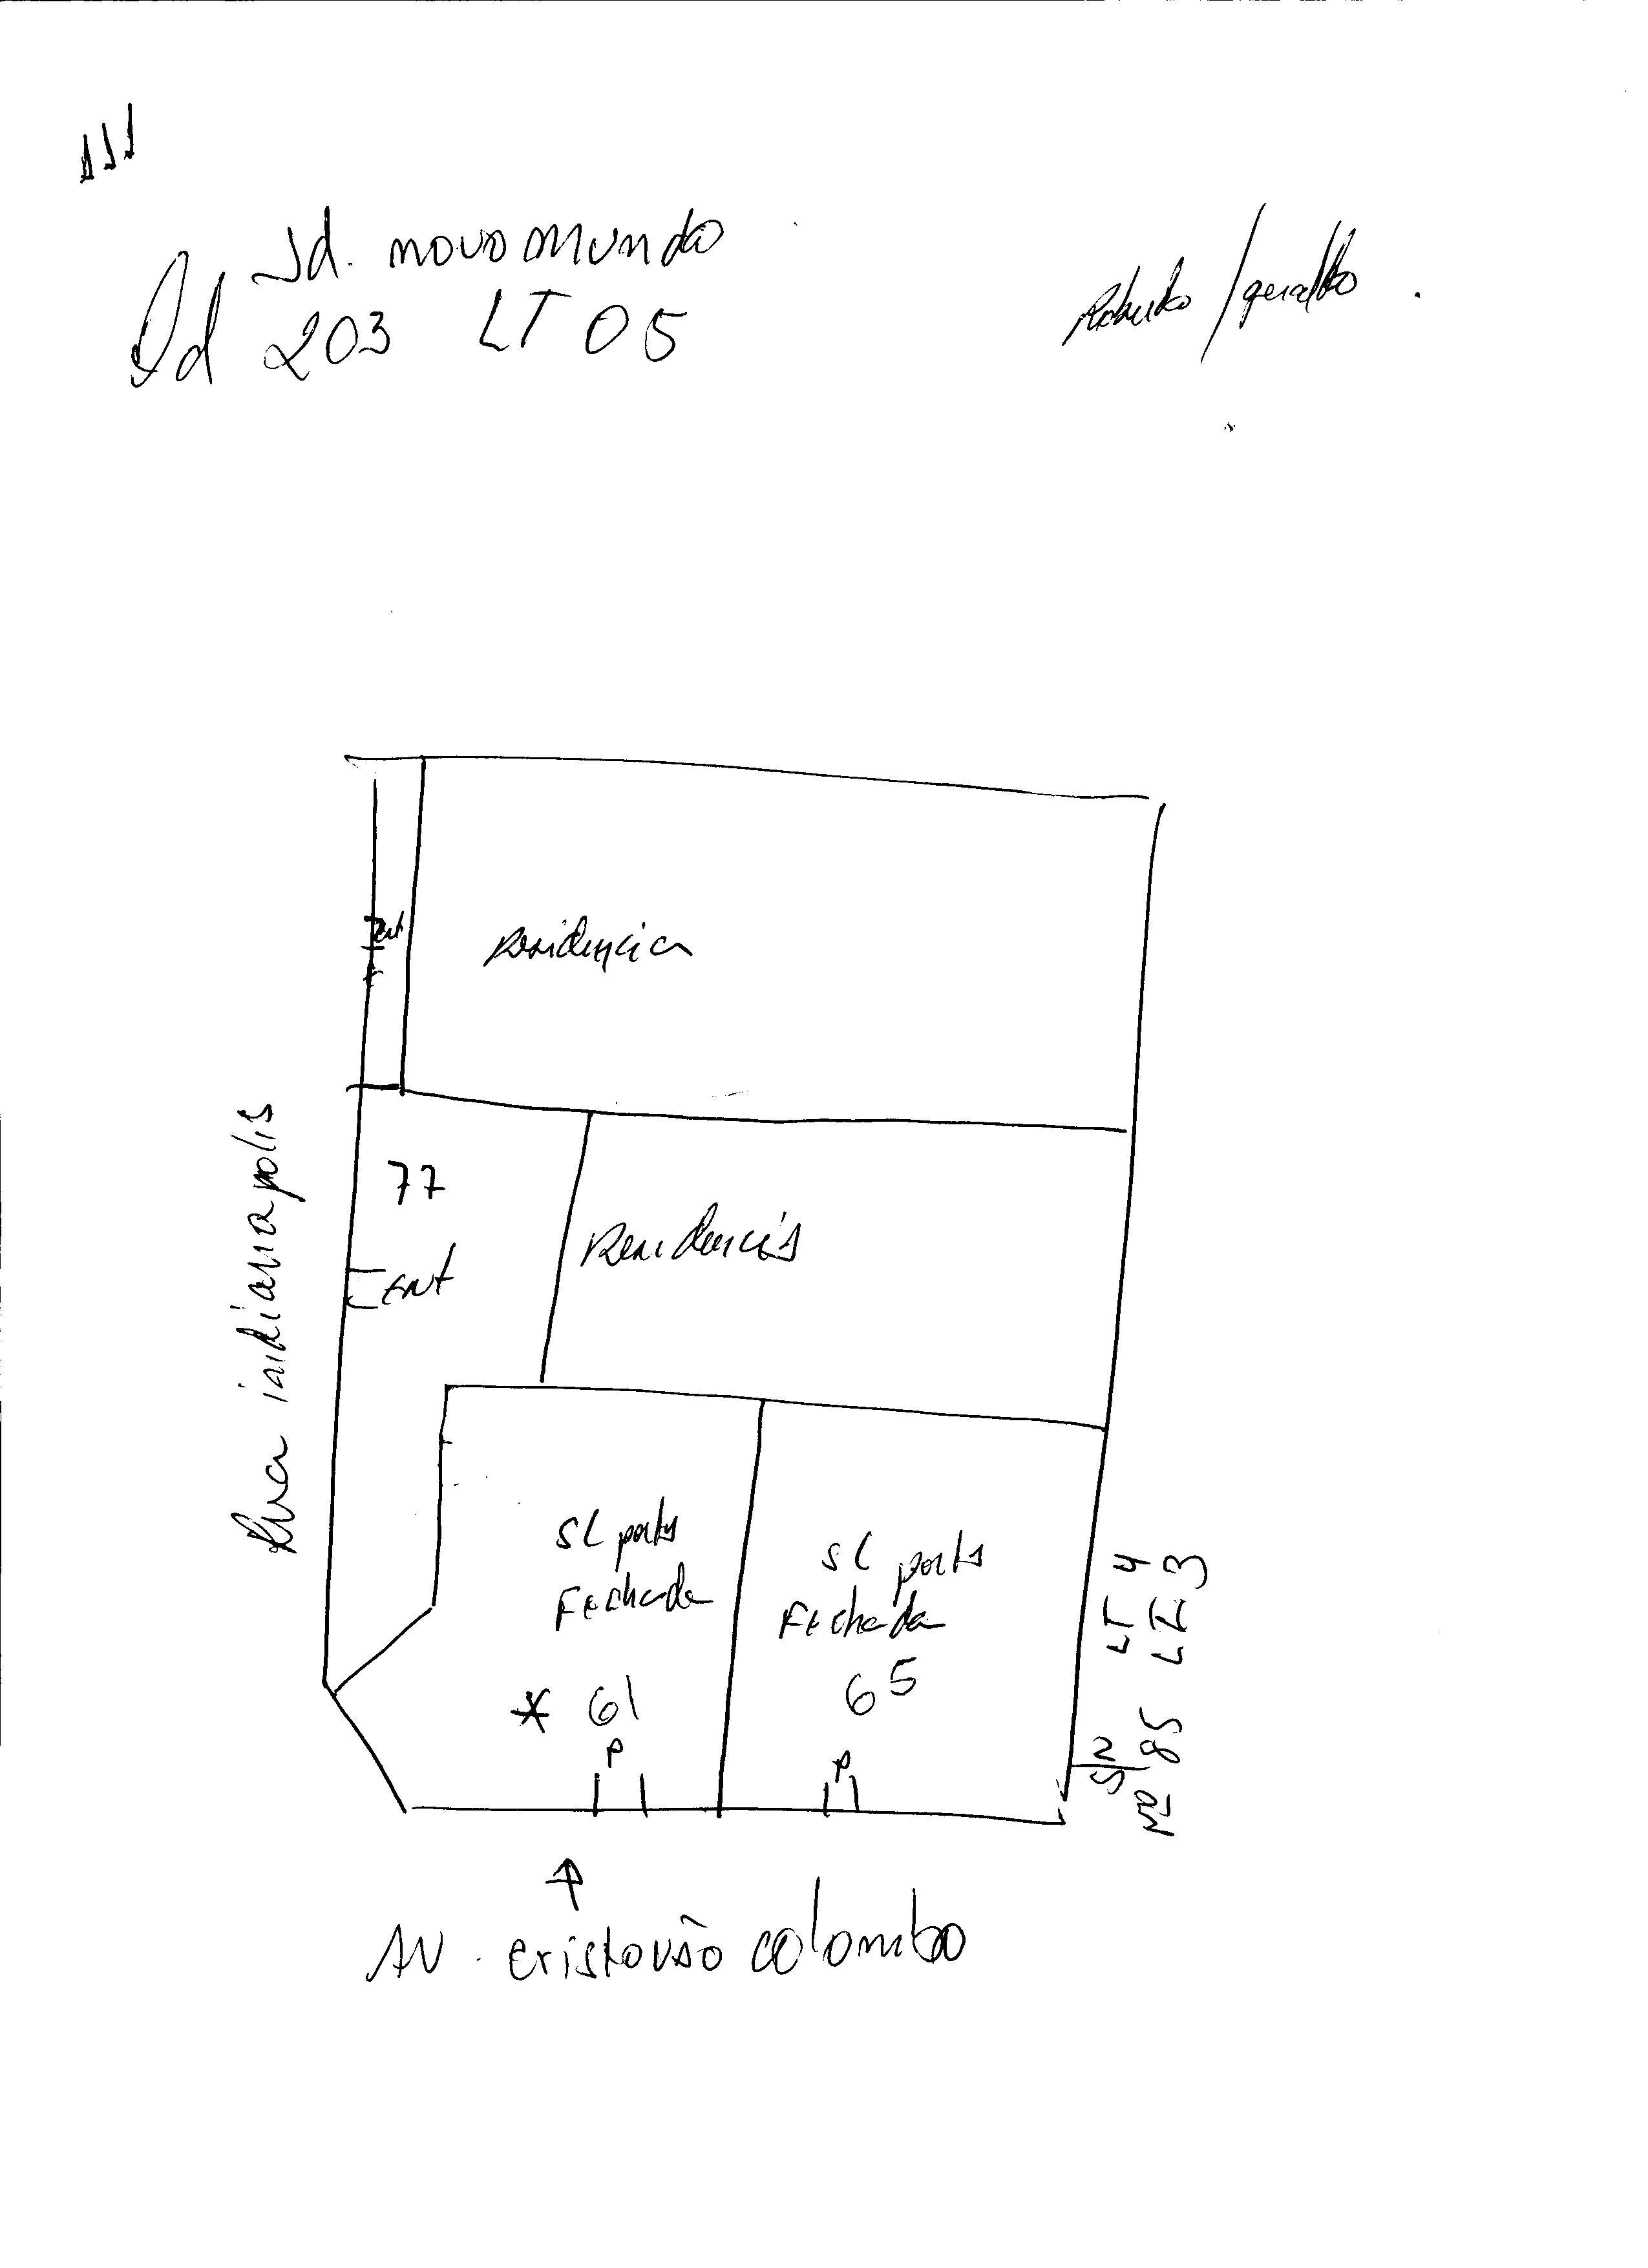 Jd. novo mundo
Qd 203 LT 05
Roberto / geraldo
ent
Residencia
77
ent
Residencia
Rua indianapolis
SL porta
Fechada
* 61
P
SL porta
Fechada
65
P
S/N LT 4
Nº 85 LT 3
AV. cristovão colombo